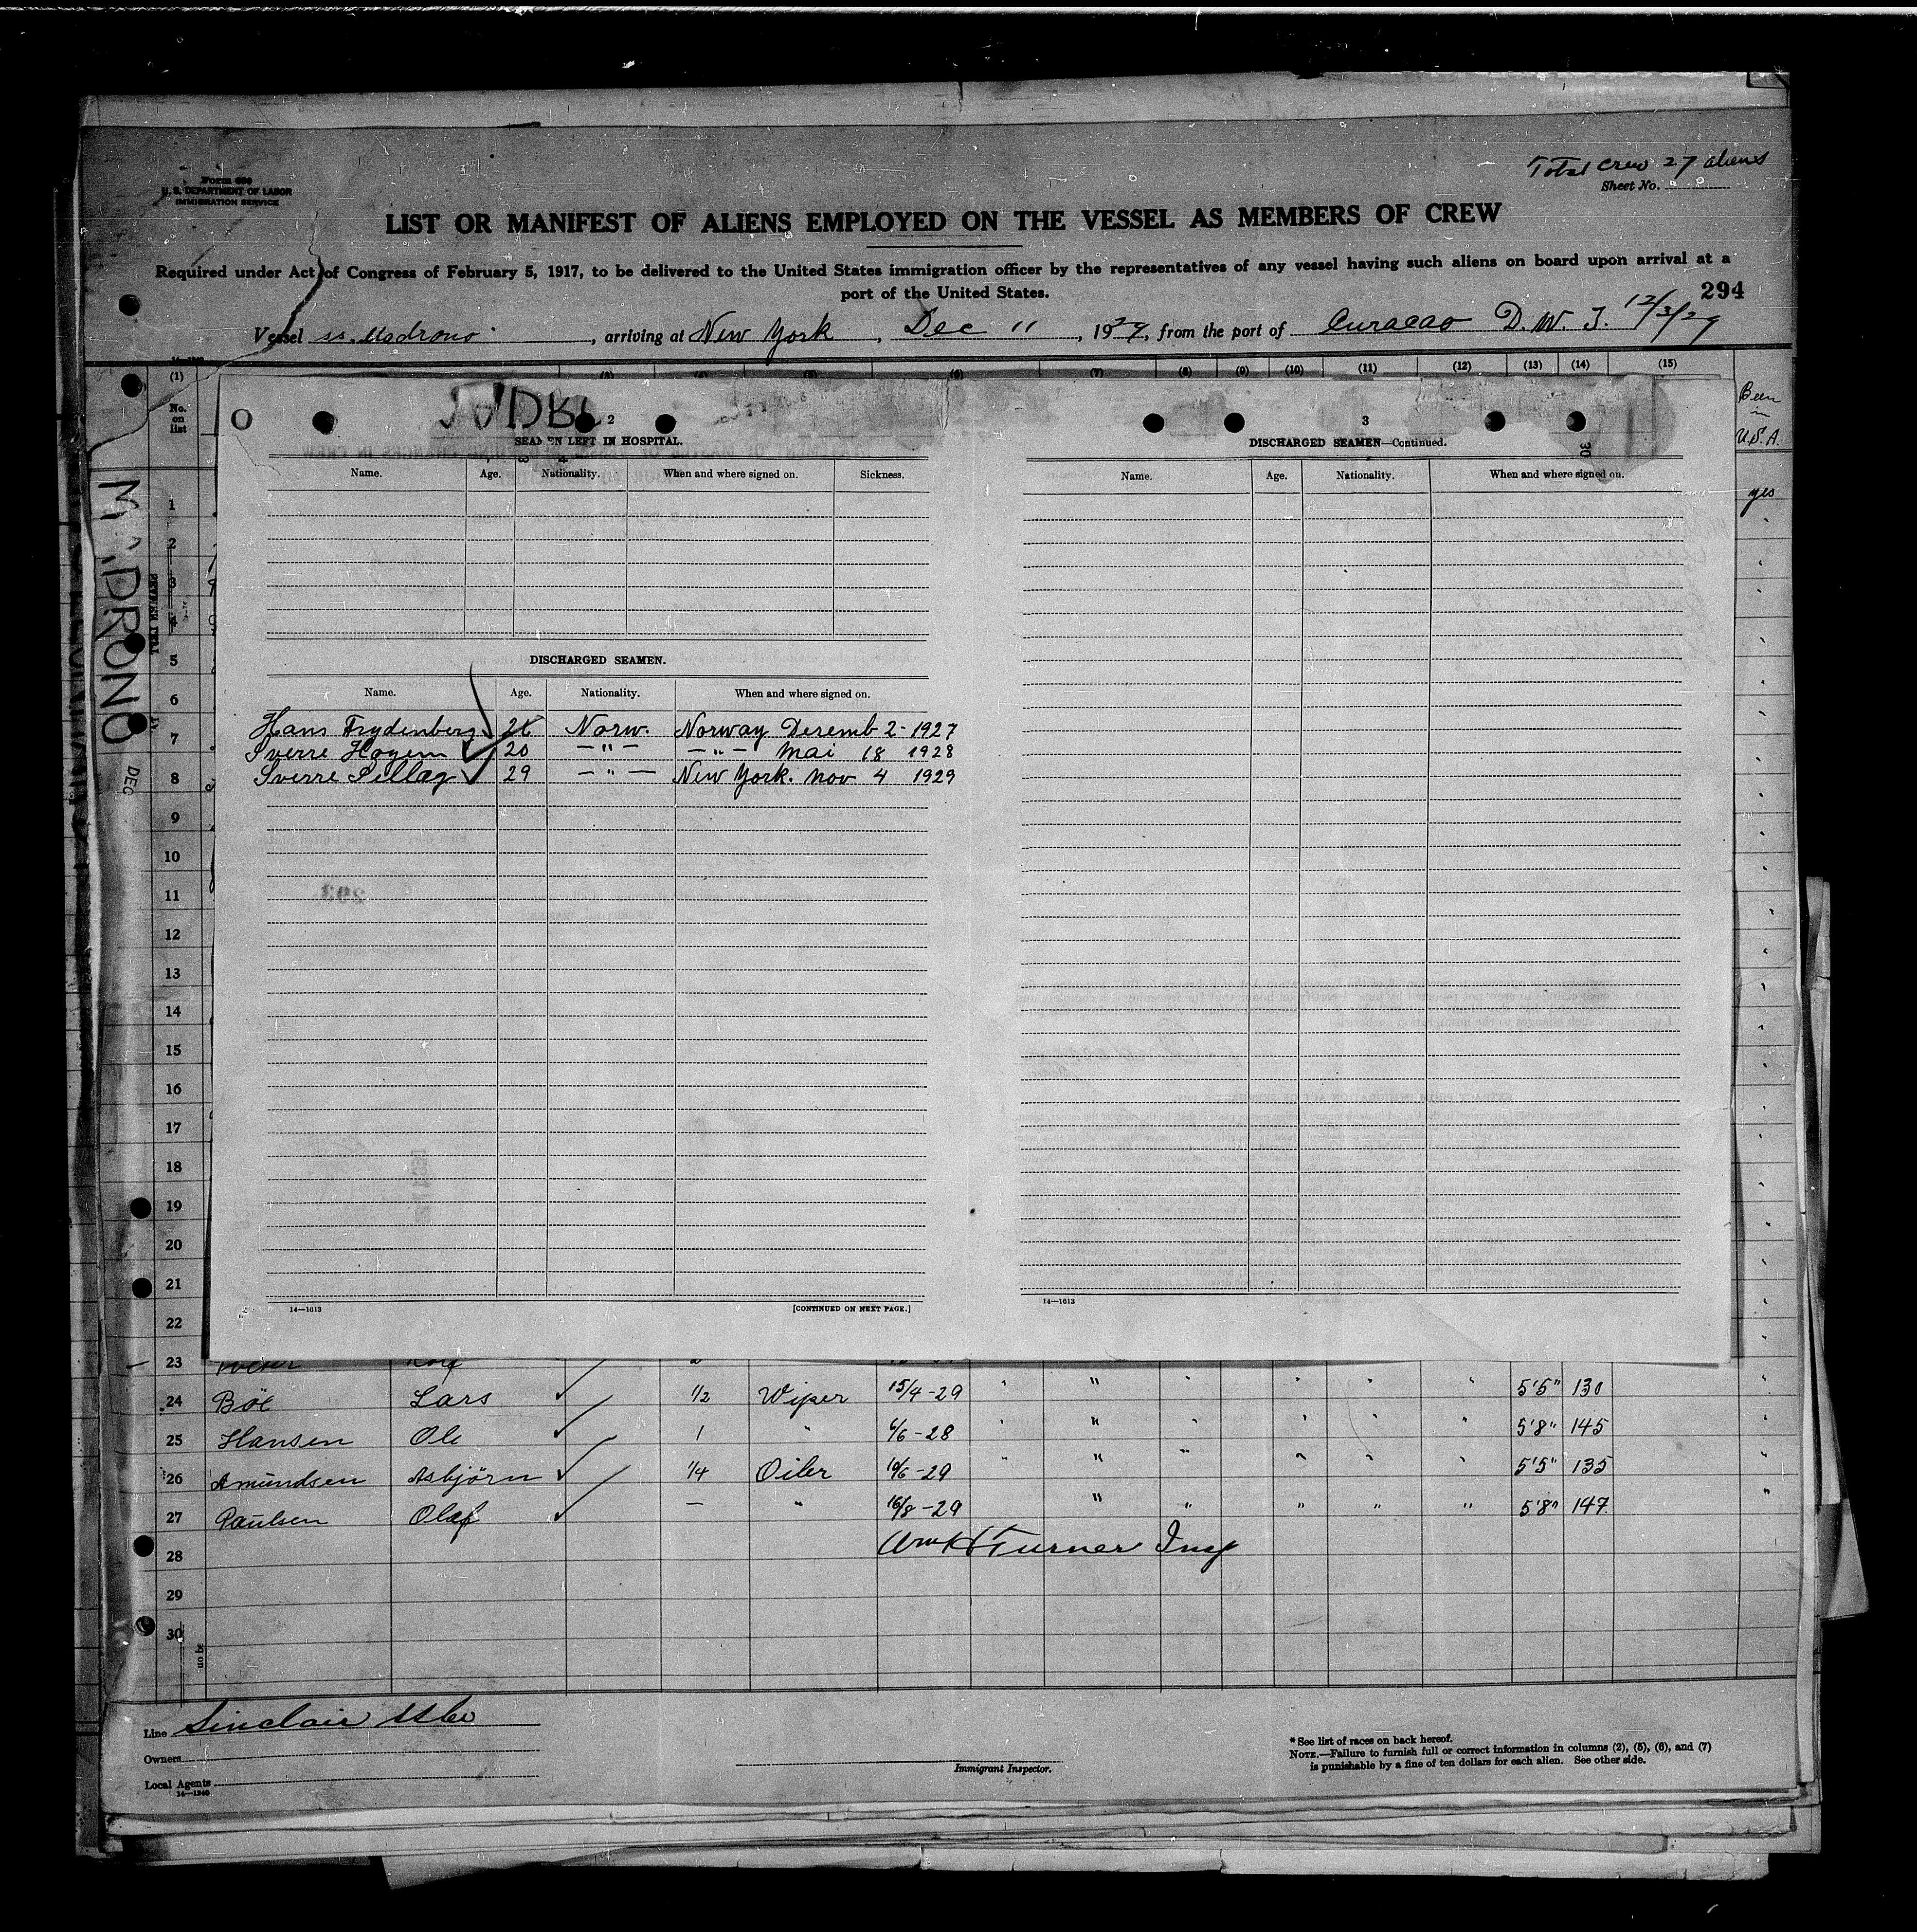 Total crew 27 aliens
U. S. DEPARTMENT OF LABOR
IMMIGRATION SERVICE
Sheet No.
LIST OR MANIFEST OF ALIENS EMPLOYED ON THE VESSEL AS MEMBERS OF CREW
Required under Act of Congress of February 5, 1917, to be delivered to the United States immigration officer by the representatives of any vessel having such aliens on board upon arrival at a
port of the United States.
294
Vessel ss. Madrono, arriving at New York, Dec 11, 1929, from the port of Curacao D. W. I. 12/3/29
(1) (11) (12) (13) (14) (15)
No. on list
Been in U.S.A.
2
SEAMEN LEFT IN HOSPITAL.
Name. Age. Nationality. When and where signed on. Sickness.
DISCHARGED SEAMEN.
Name. Age. Nationality. When and where signed on.
Hans Frydenberg 21 Norw. Norway Desemb 2-1927
Sverre Hogem 20 —"— —"— Mai 18 1928
Sverre Pillag 29 —"— New York. Nov 4 1929
14—1613
[CONTINUED ON NEXT PAGE.]
3
DISCHARGED SEAMEN—Continued.
Name. Age. Nationality. When and where signed on.
14—1613
DEC
yes
1
2
3
4
5
6
7
8
9
10
11
12
13
14
15
16
17
18
19
20
21
22
23
24 Böe Lars ✓ 1/2 Wiper 15/4-29 " " " " " " 5'5" 130 "
25 Hansen Ole ✓ 1 " 6/6-28 " " " " " 5'8" 145 "
26 Amundsen Asbjörn ✓ 1/4 Oiler 10/6-29 " " " " " " 5'5" 135 "
27 Paulsen Olaf ✓ — " 16/8-29 " " " " " 5'8" 147 "
28 Wm H Turner Insp
29
30
Line Sinclair SSCo
Owners
Local Agents
14—1240
Immigrant Inspector.
* See list of races on back hereof.
NOTE.—Failure to furnish full or correct information in columns (2), (5), (6), and (7)
is punishable by a fine of ten dollars for each alien. See other side.